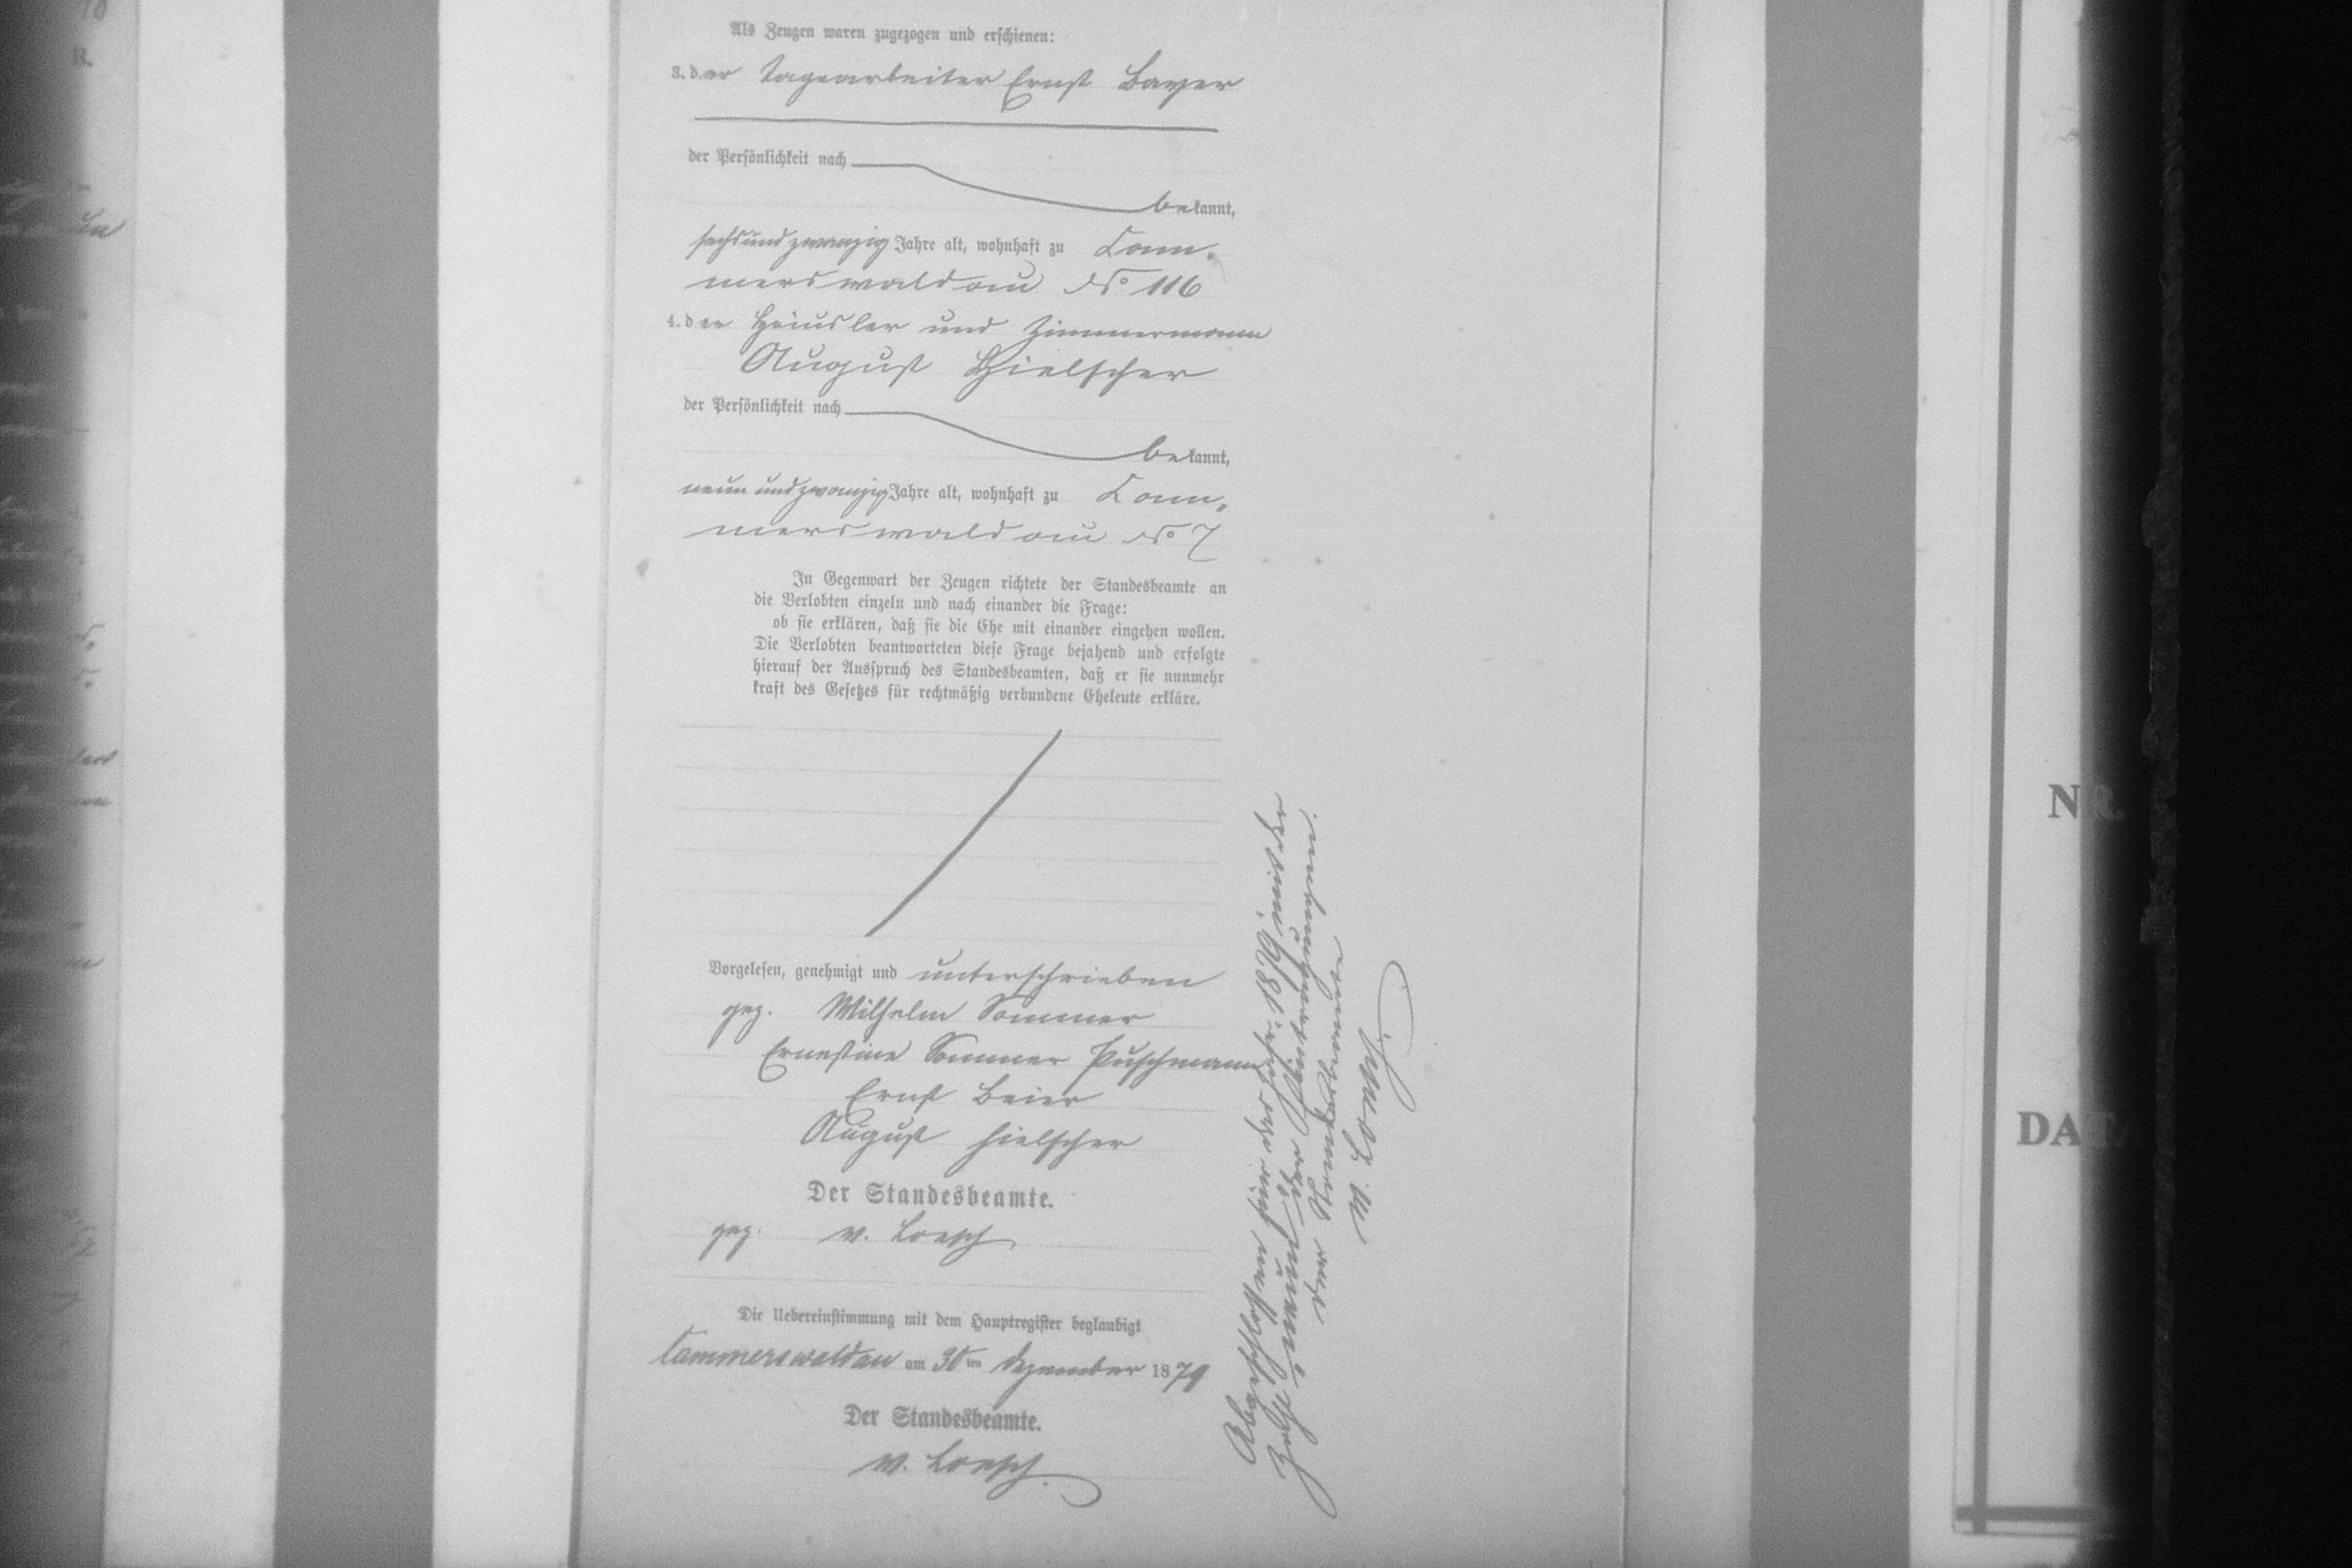 Als Zeugen waren zugezogen und erschienen:
3. der Tagearbeiter Ernst Bayer
der Persönlichkeit nach
bekannt,
sechsundzwanzig Jahre alt, wohnhaft zu Cam-
merswaldau No 116
4. der Häusler und Zimmermann
August Hielscher
der Persönlichkeit nach
bekannt,
neun undzwanzig Jahre alt, wohnhaft zu Cam-
merswaldau No 7
In Gegenwart der Zeugen richtete der Standesbeamte an
die Verlobten einzeln und nach einander die Frage:
ob sie erklären, daß sie die Ehe mit einander eingehen wollen.
Die Verlobten beantworteten diese Frage bejahend und erfolgte
hierauf der Ausspruch des Standesbeamten, daß er sie nunmehr
kraft des Gesetzes für rechtmäßig verbundene Eheleute erkläre.
Vorgelesen, genehmigt und unterschrieben
gez. Wilhelm Sommer
Ernestine Sommer Puschmann
Ernst Beier
August Hielscher
Der Standesbeamte.
gez. v. Loesch
Die Uebereinstimmung mit dem Hauptregister beglaubigt
Cammerswaldau am 30ten Dezember 1879
Der Standesbeamte.
v. Loesch.
Abgeschlossen für das Jahr 1879 mit der
Zahl neun der Eintragungen.
der Standesbeamte
v. Loesch.
NR.
DAT